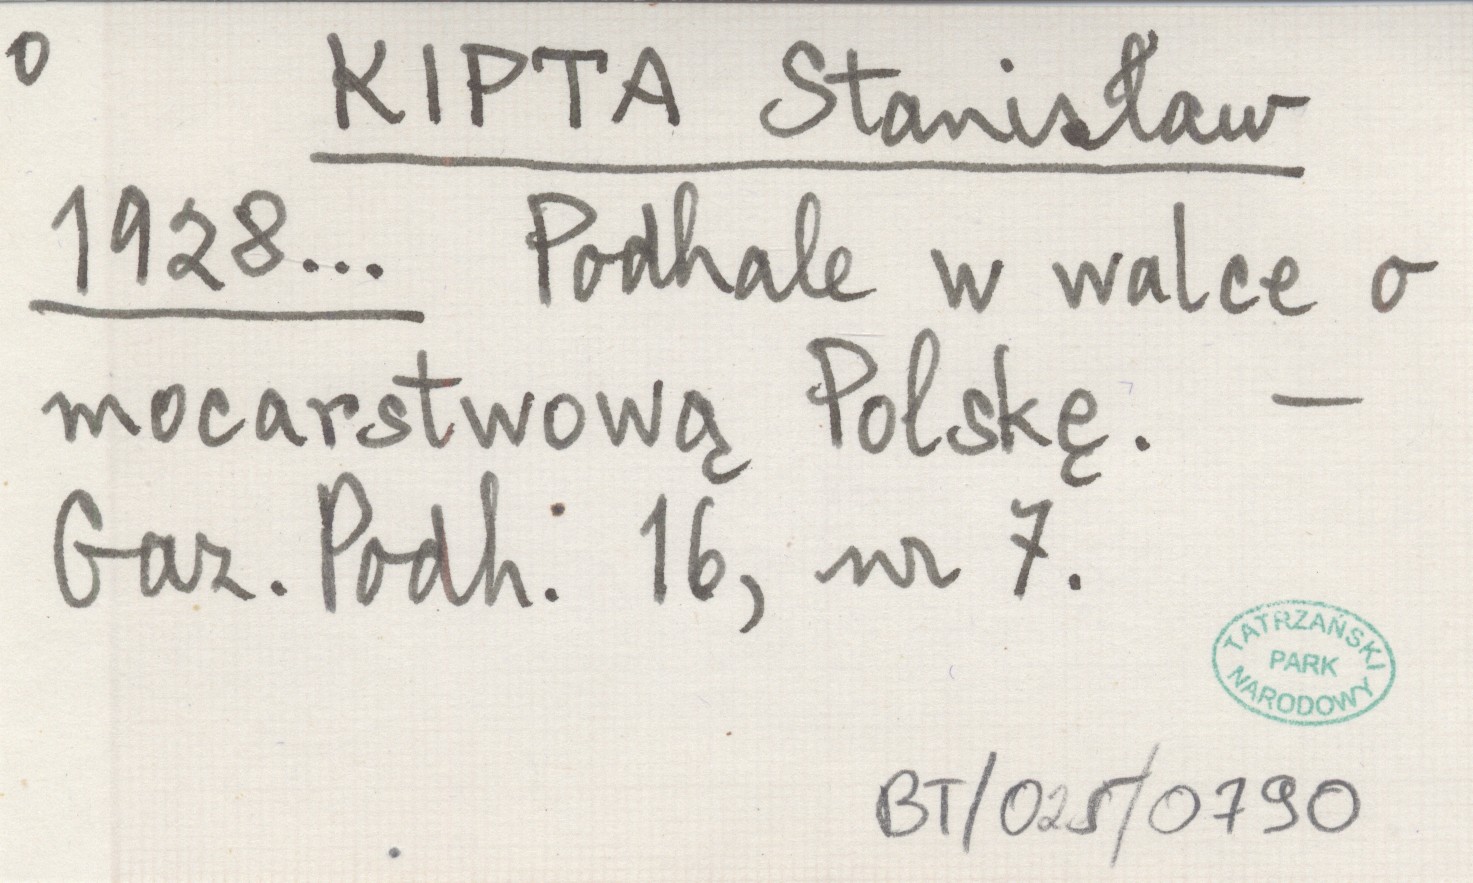 o
KIPTA Stanisław
1928... Podhale w walce o
mocarstwową Polskę. —
Gaz. Podh. 16, nr 7.
TATRZAŃSKI
PARK
NARODOWY
BT/025/0790